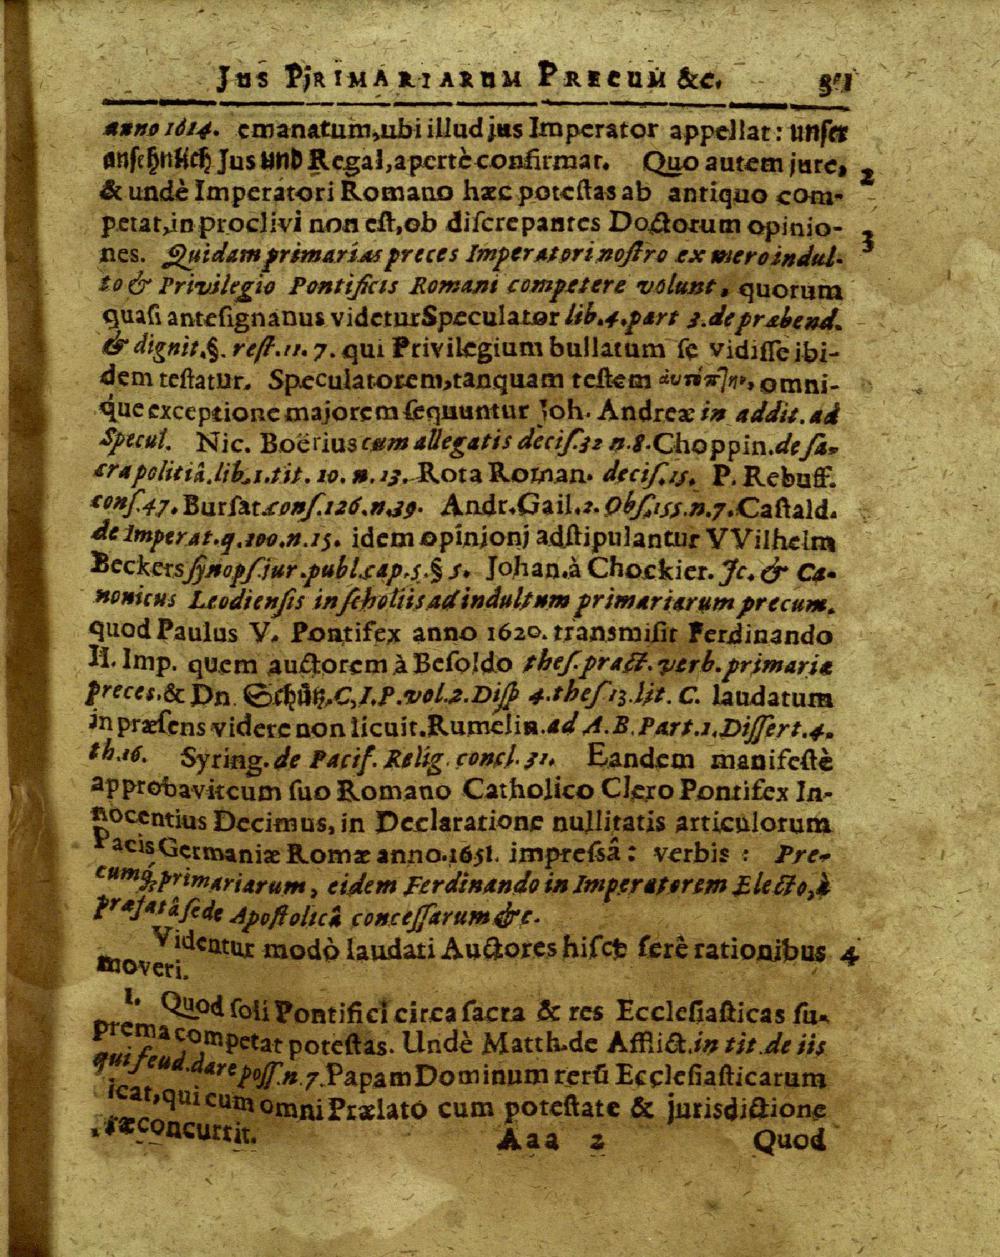 Jus Primariarum Precum &c.
anno 1614. emanatum, ubi illud jus Imperator appellat: unser
ansehnlich Jus und Regal, apertè confirmat. Quo autem jure, 2
& undè Imperatori Romano hæc potestas ab antiquo com-
petat, in proclivi non est, ob discrepantes Doctorum opinio- 3
nes. Quidam primarias preces Imperatori nostro ex mero indul-
to & Privilegio Pontificis Romani competere volunt, quorum
quasi antesignanus videtur Speculator lib. 4. part 3. de præbend.
& dignit. §. rest. 11. 7. qui Privilegium bullatum se vidisse ibi-
dem testatur. Speculatorem, tanquam testem omni-
que exceptione majorem sequuntur Joh. Andreæ in addit. ad
Specul. Nic. Boërius cum allegatis decis. 32 n. 8. Choppin. de sa-
cra politiâ. lib. 1. tit. 10. n. 13. Rota Roman. decis. 15. P. Rebuff.
cons. 47. Bursat. cons. 126. n. 39. Andr. Gail. 2. Obs. 155. n. 7. Castald.
de Imperat. q. 100. n. 15. idem opinioni adstipulantur VVilhelm
Beckers synops. jur. publ. cap. 5. § 5. Johan. à Chockier. Jc. & Ca-
nonicus Leodiensis in scholiis ad indultum primariarum precum.
quod Paulus V. Pontifex anno 1620. transmisit Ferdinando
II. Imp. quem auctorem à Besoldo thes. pract. verb. primariæ
preces. & Dn. Schütz. C. I. P. vol. 2. Disp 4. thes. 13. lit. C. laudatum
in præsens videre non licuit. Rumelin. ad A. B. Part. 1. Dissert. 4.
th. 16. Syring. de Pacif. Relig. concl. 31. Eandem manifestè
approbavit cum suo Romano Catholico Clero Pontifex In-
nocentius Decimus, in Declaratione nullitatis articulorum
Pacis Germaniæ Romæ anno. 1651. impressâ: verbis: Pre-
cumq; primariarum, eidem Ferdinando in Imperatorem Electo, à
præfatâ sede Apostolicâ concessarum &c.
Videntur modò laudati Auctores hisce ferè rationibus 4
moveri.
1. Quod soli Pontifici circa sacra & res Ecclesiasticas su-
prema competat potestas. Undè Matth. de Afflict. in tit. de iis
qui feud. dare poss. n. 7. Papam Dominum rerū Ecclesiasticarum
icat, qui cum omni Prælato cum potestate & jurisdictione
concurrit.
Aaa 2 Quod